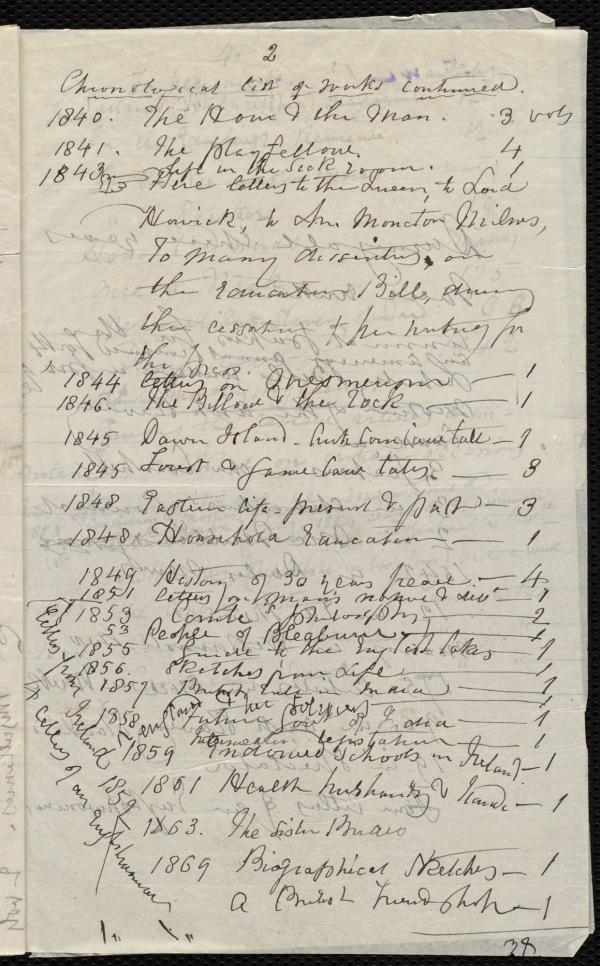 2
Chronological list of works continued.
1840. The Hour & the Man. 3 vols
1841. The playfellow. 4
1843 Life in the Sick room. 1
Here letters to the Queen, to Lord
Howick, to Mr. Moncton Milnes,
To many dissenters, on
the Education Bill, during
the cessation of her writing for
the press.
1844 Letters on Mesmerism — 1
1846. The Billow & the Rock — 1
1845 Dawn Island - Anti Corn Law tale — 1
1845 Forest & Game Law tales — 3
1848 Eastern life - present & past — 3
1848 Household Education — 1
1849 History of 30 years peace. — 4
1851 letters on man's nature & devt — 1
1853 Comte's philosophy — 2
53 People of Bleaburn — 1
1855 Guide to the English Lakes 1
1856. Sketches from Life 1
1857 British Rule in India — 1
England & her Soldiers
1858 Future Govt of India — 1
legislation — 1
1859 Endowed Schools in Ireland — 1
1861 Health husbandry & Handt — 1
1863. The Sister Brides
1869 Biographical Sketches — 1
A British Friendship — 1
38
Letters from Ireland 1
1852
by letters of an Englishwoman
1„ 1„